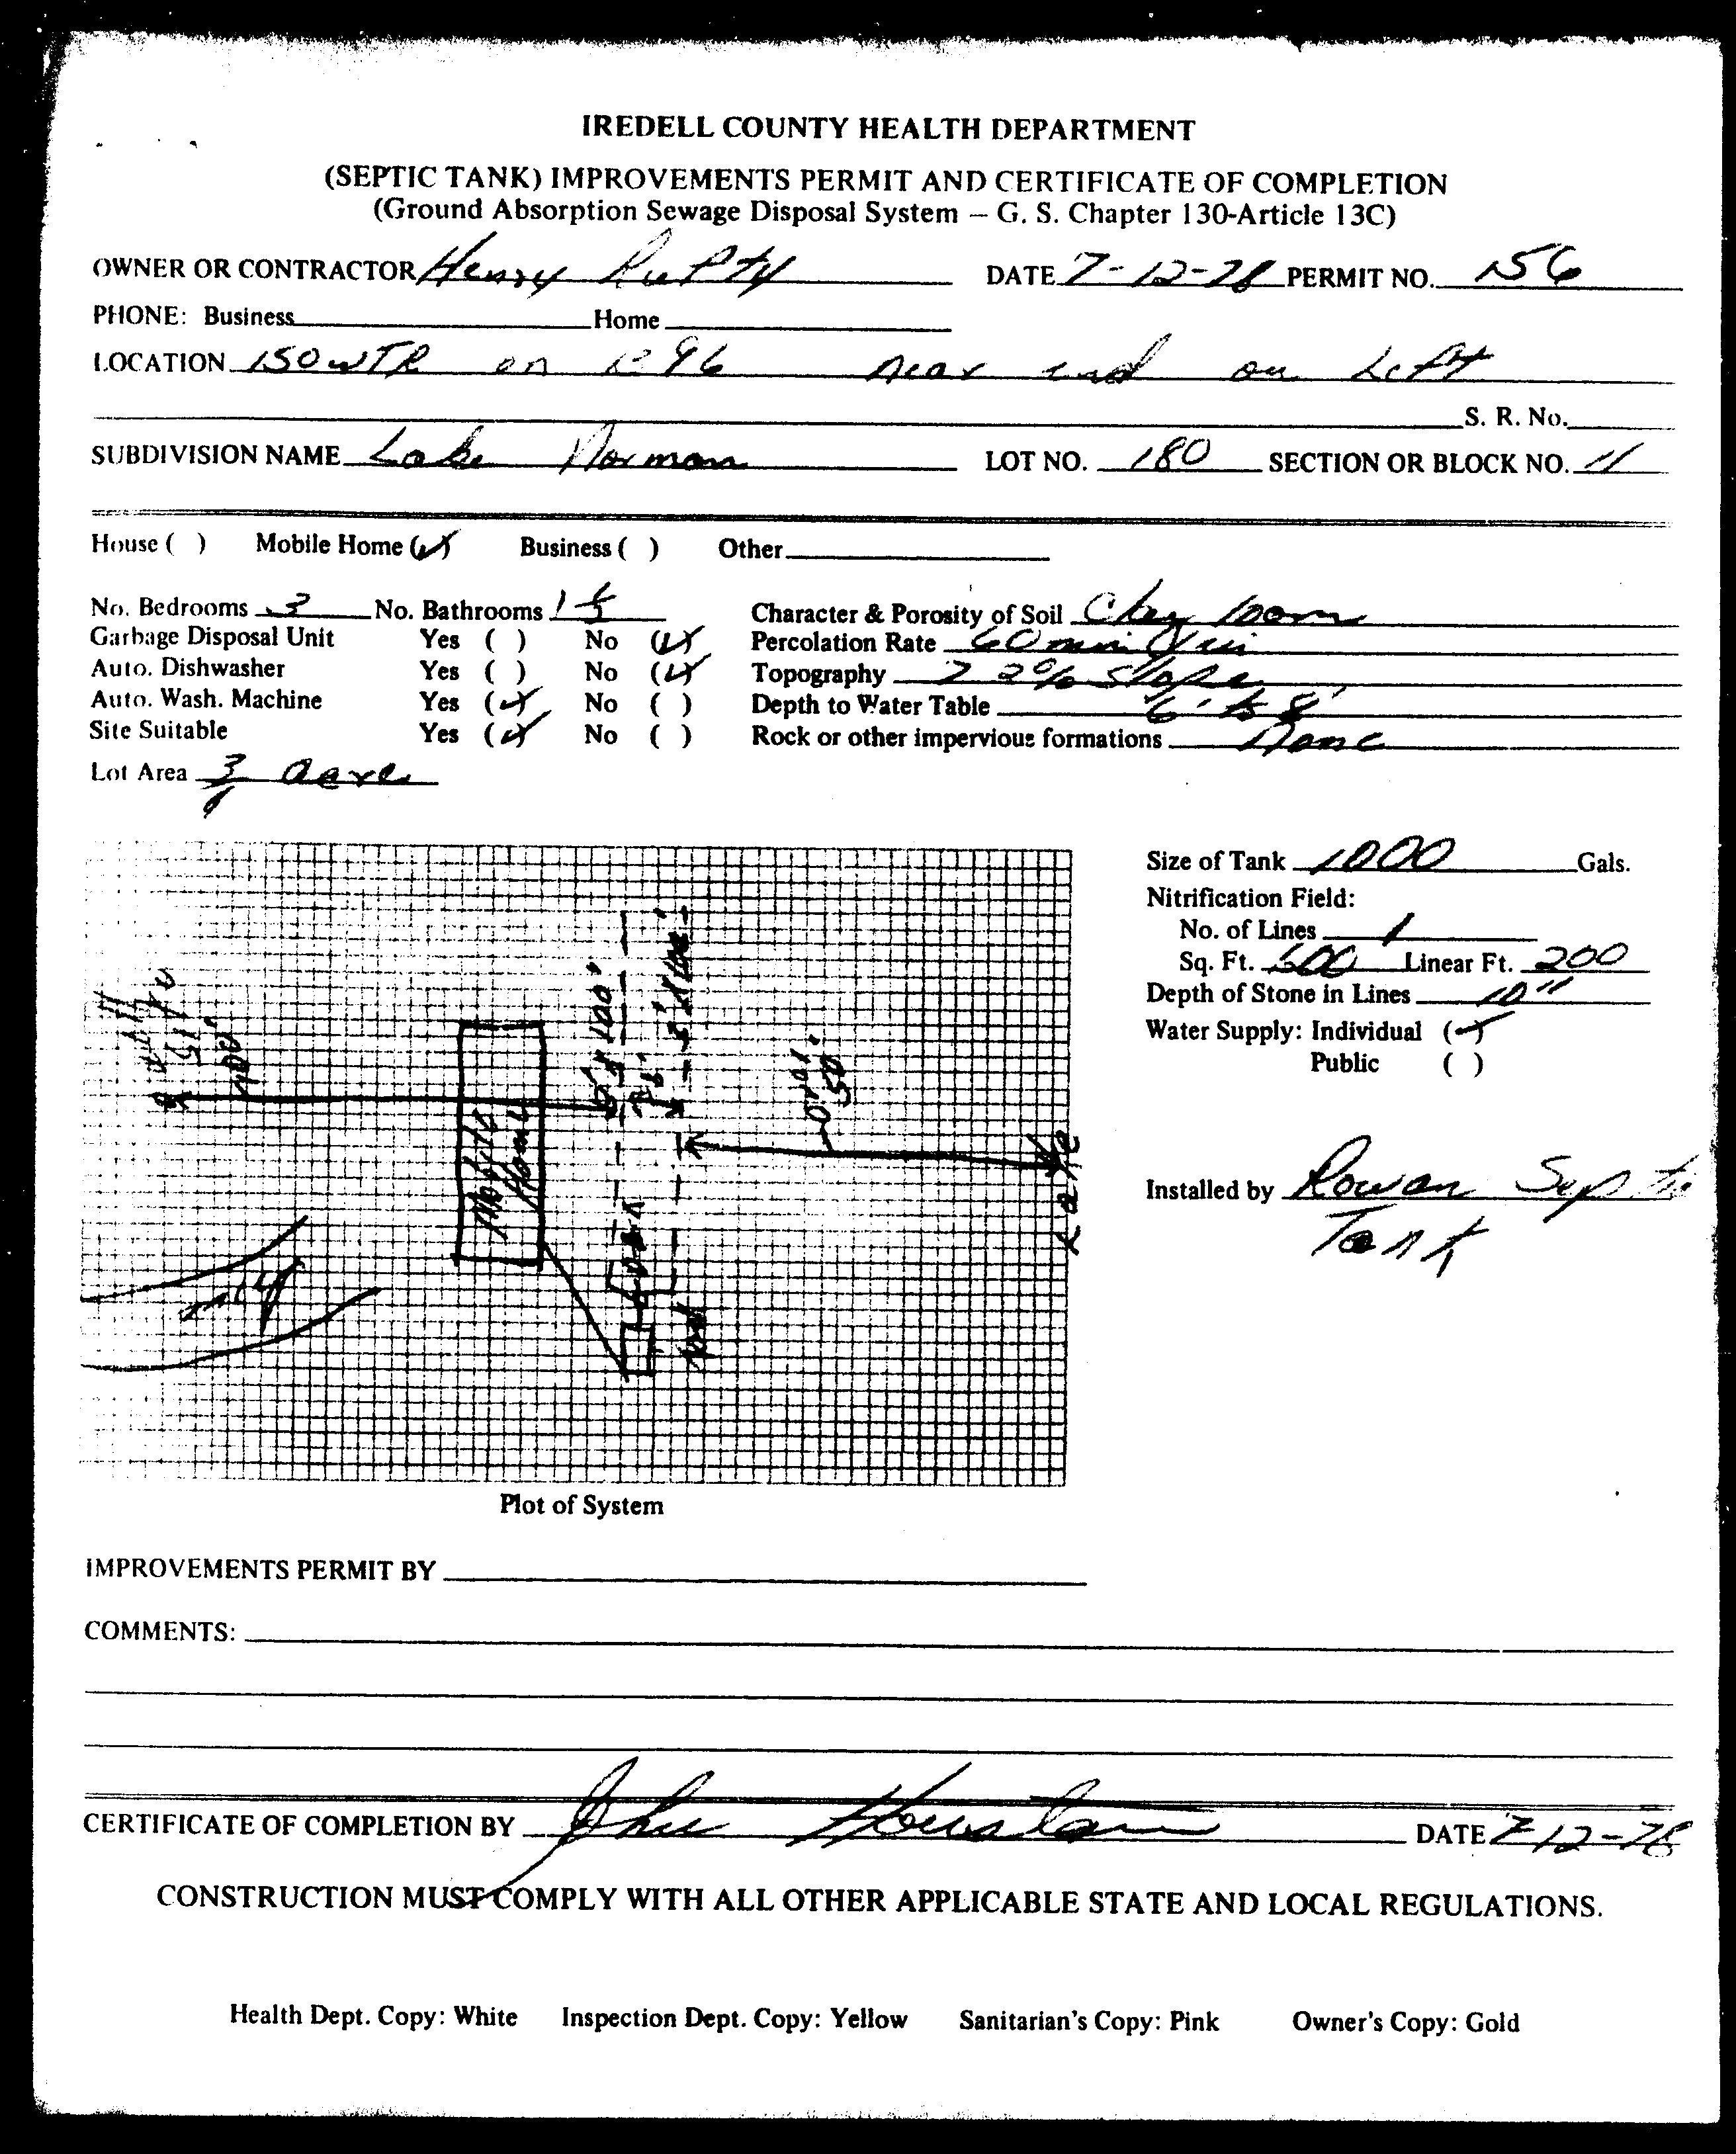 IREDELL COUNTY HEALTH DEPARTMENT
(SEPTIC TANK) IMPROVEMENTS PERMIT AND CERTIFICATE OF COMPLETION
(Ground Absorption Sewage Disposal System – G. S. Chapter 130-Article 13C)
OWNER OR CONTRACTOR Henry DATE 7-12-78 PERMIT NO. 156
PHONE: Business Home
LOCATION 150 W TR on near end on Left
S. R. No.
SUBDIVISION NAME Lake Norman LOT NO. 180 SECTION OR BLOCK NO. 11
House ( ) Mobile Home (✓) Business ( ) Other
No. Bedrooms 3 No. Bathrooms 1 Character & Porosity of Soil Clay loam
Garbage Disposal Unit Yes ( ) No (✓) Percolation Rate 60 min
Auto. Dishwasher Yes ( ) No (✓) Topography > 2% Slope
Auto. Wash. Machine Yes (✓) No ( ) Depth to Water Table 6' to 8'
Site Suitable Yes (✓) No ( ) Rock or other impervious formations None
Lot Area acre
Size of Tank 1000 Gals.
Nitrification Field:
No. of Lines 1
Sq. Ft. 600 Linear Ft. 200
Depth of Stone in Lines 10"
Water Supply: Individual (✓)
Public ( )
400'
Mobile Home
3' x 100'
3' x 100'
6'
50'
Lake
Drive
Installed by Rowan Septic
Tank
Plot of System
IMPROVEMENTS PERMIT BY
COMMENTS:
CERTIFICATE OF COMPLETION BY John Houston DATE 7-12-78
CONSTRUCTION MUST COMPLY WITH ALL OTHER APPLICABLE STATE AND LOCAL REGULATIONS.
Health Dept. Copy: White Inspection Dept. Copy: Yellow Sanitarian's Copy: Pink Owner's Copy: Gold